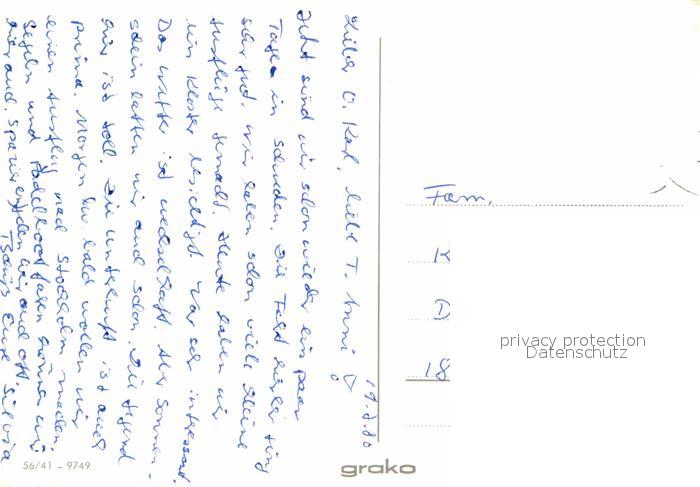 19.7.80
Lieber O. Karl, liebe T. Anni!
Jetzt sind wir schon wieder ein paar
Tage in Schweden. Die Fahrt hierher ging
sehr gut. Wir haben schon viele kleine
Ausflüge gemacht. Heute haben wir
ein Kloster besichtigt. War sehr interessant.
Das Wetter ist wechselhaft. Aber Sonnen-
schein hatten wir auch schon. Die Gegend
hier ist toll. Die Unterkunft ist auch
prima. Morgen bald wollen wir
einen Ausflug nach Stockholm machen.
Segeln und Paddelboot fahren können wir
hier auch. Spazieren wir auch oft.
Eure Silvia
Fam.
K
D
18
privacy protection
Datenschutz
56/41 - 9749
grako